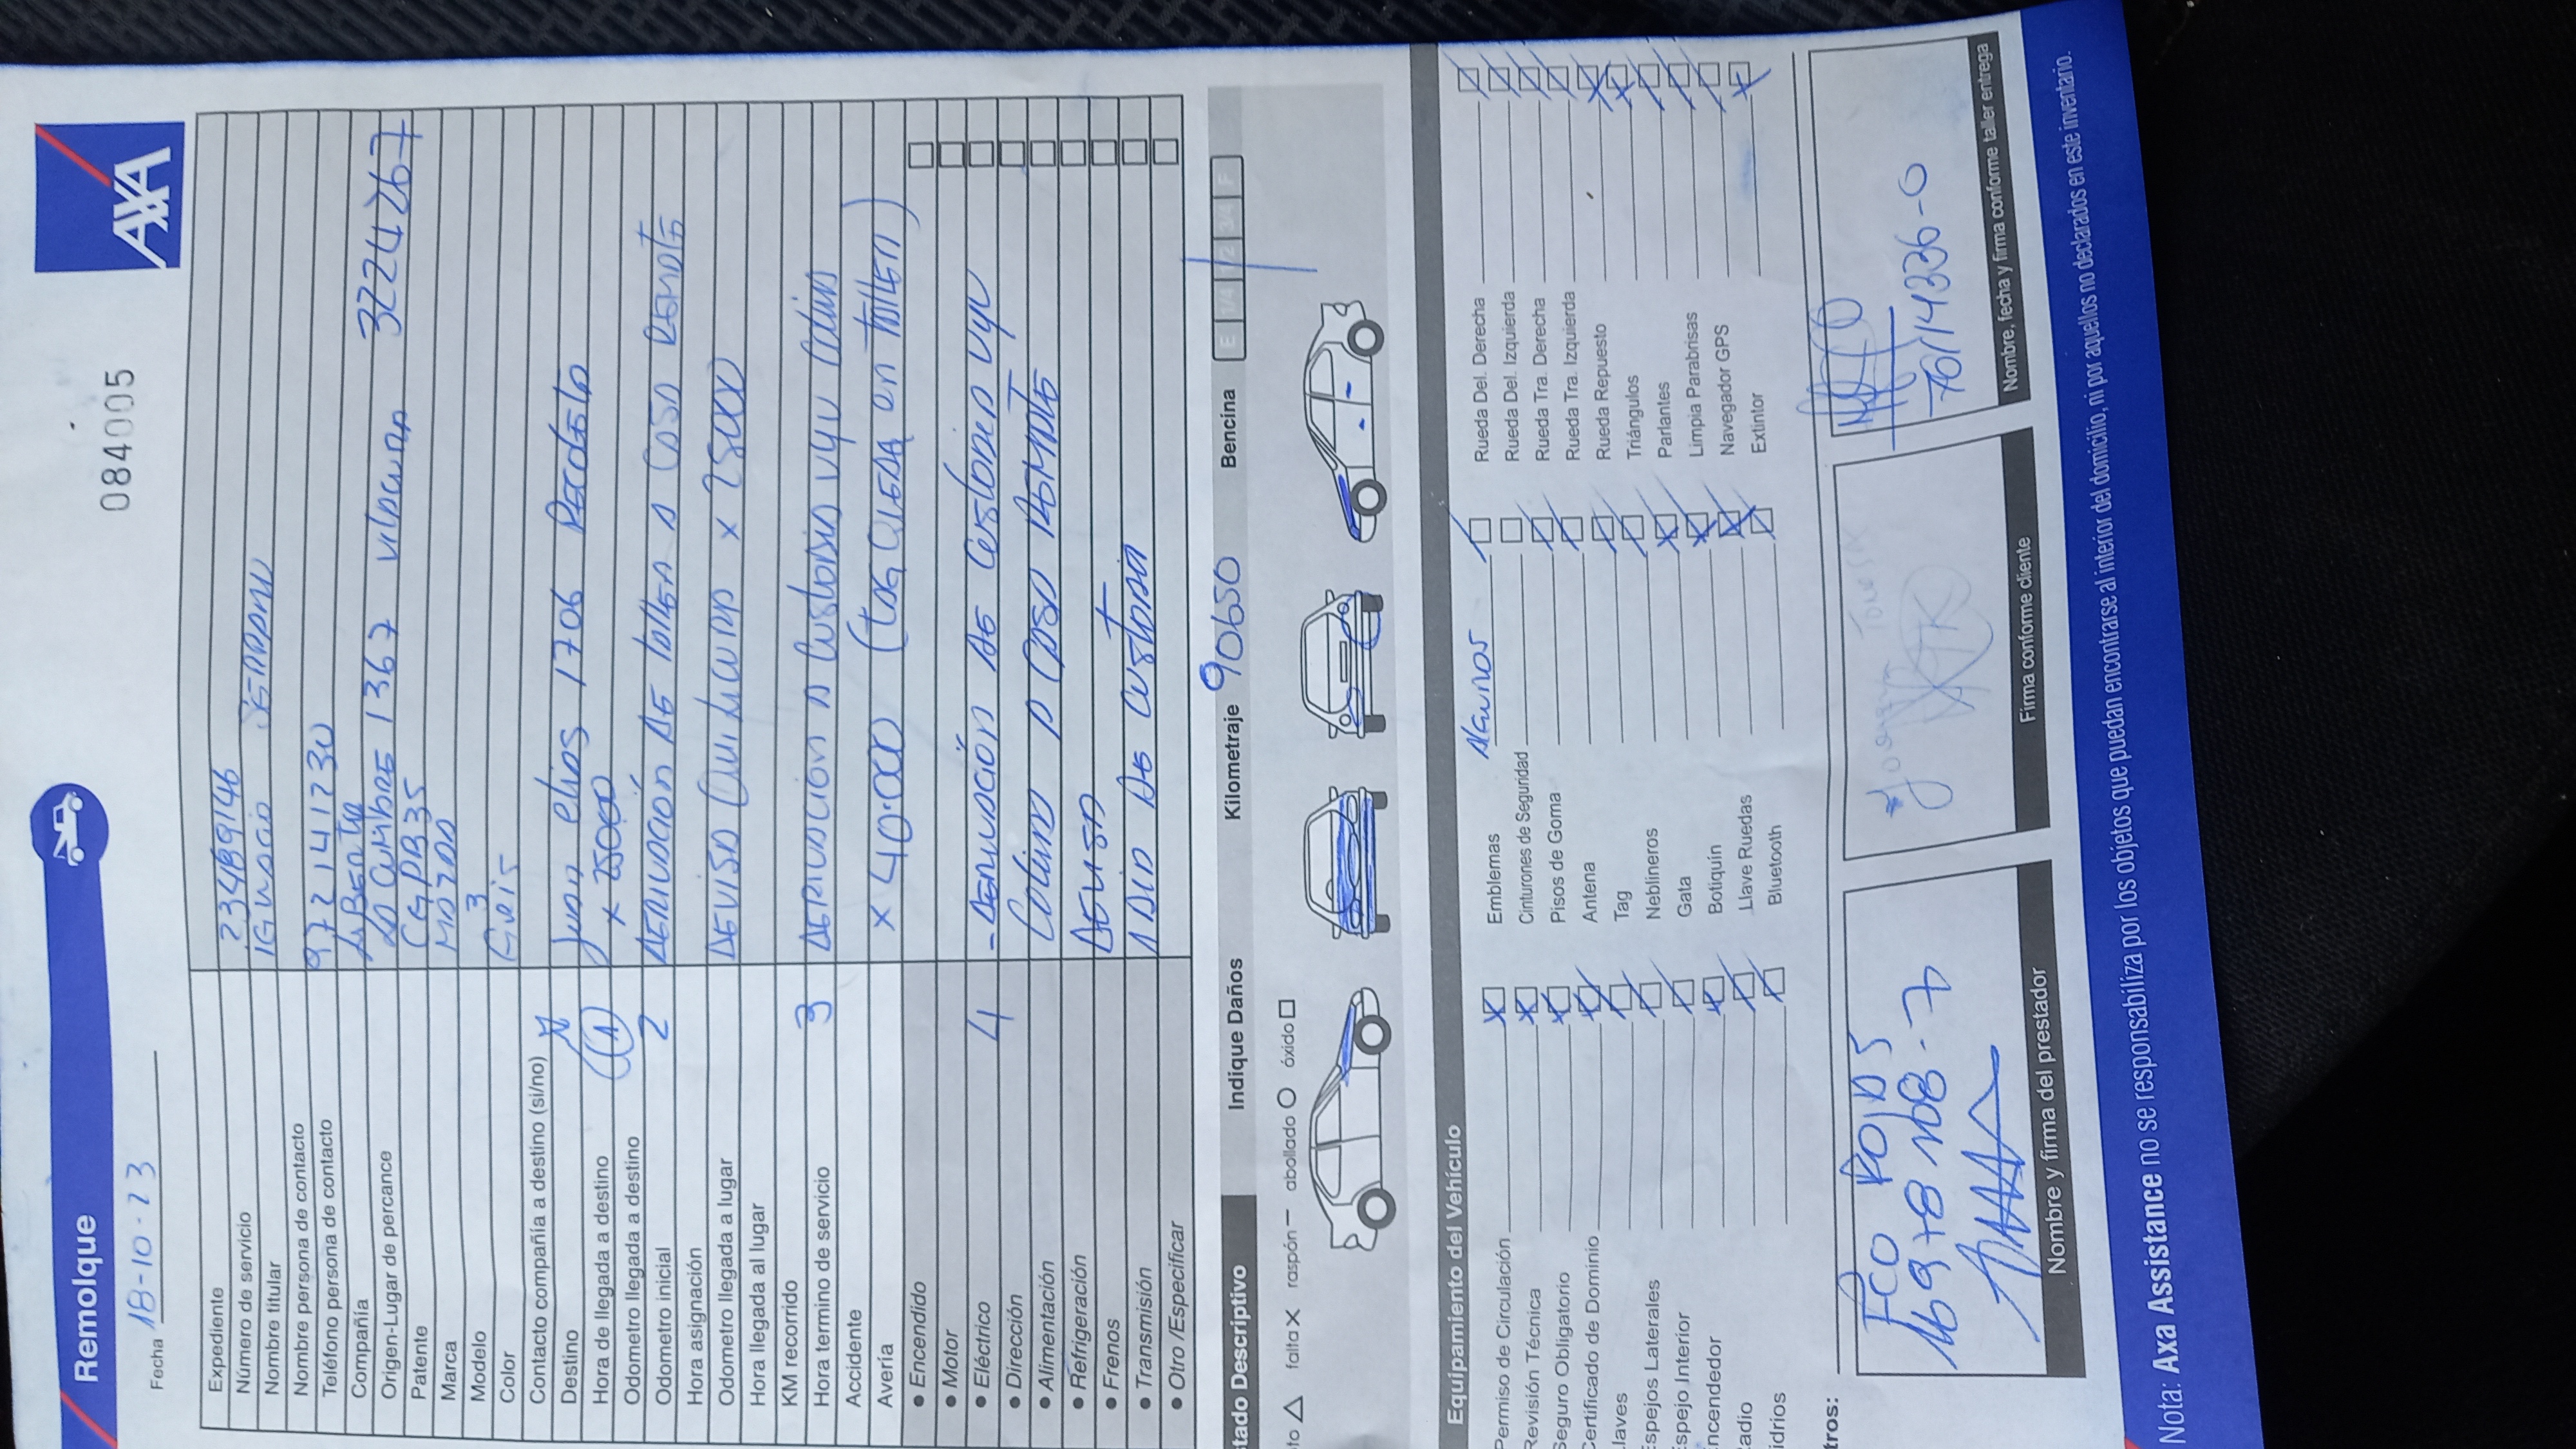 Remolque
AXA
084005
Fecha 18-10-23
Expediente
Número de servicio 234B9146
Nombre titular IGNACIO
Nombre persona de contacto
Teléfono persona de contacto 972141230
Compañía
Origen-Lugar de percance La Cumbre 1367 vitacura 3224267
Patente CGPB35
Marca Mazda
Modelo 3
Color Gris
Contacto compañía a destino (si/no)
Destino Juan elias 1706 Recoleta
Hora de llegada a destino (1) x 25000
Odometro llegada a destino
Odometro inicial 2 DERIVACION DE taller A CASA REMATE
Hora asignación
Odometro llegada a lugar AEVISA Quilicura x 25000
Hora llegada al lugar
KM recorrido
Hora termino de servicio 3 DERIVACION A Custodia vyv Colina
Accidente
Avería x 40.000 (tag queda en taller)
• Encendido
• Motor
• Eléctrico 4 - DERIVACION DE Custodia vyv
• Dirección
• Alimentación Colina A CASA REMATE
• Refrigeración
• Frenos AEVISA
• Transmisión 1 DIA DE Custodia
• Otro /Especificar
tado Descriptivo
Indique Daños
Kilometraje 90650
Bencina
E 1/4 1/2 3/4 F
to △ falta X raspón — abollado O óxido □
Equipamiento del Vehículo
Permiso de Circulación
Emblemas Algunos
Rueda Del. Derecha
Revisión Técnica
Cinturones de Seguridad
Rueda Del. Izquierda
Seguro Obligatorio
Pisos de Goma
Rueda Tra. Derecha
ertificado de Dominio
Antena
Rueda Tra. Izquierda
laves
Tag
Rueda Repuesto
spejos Laterales
Neblineros
Triángulos
spejo Interior
Gata
Parlantes
ncendedor
Botiquín
Limpia Parabrisas
adio
Llave Ruedas
Navegador GPS
idrios
Bluetooth
Extintor
tros:
FCO ROJAS
16978168-7
Nombre y firma del prestador
Firma conforme cliente
Nombre, fecha y firma conforme taller entrega
Nota: Axa Assistance no se responsabiliza por los objetos que puedan encontrarse al interior del domicilio, ni por aquellos no declarados en este inventario.